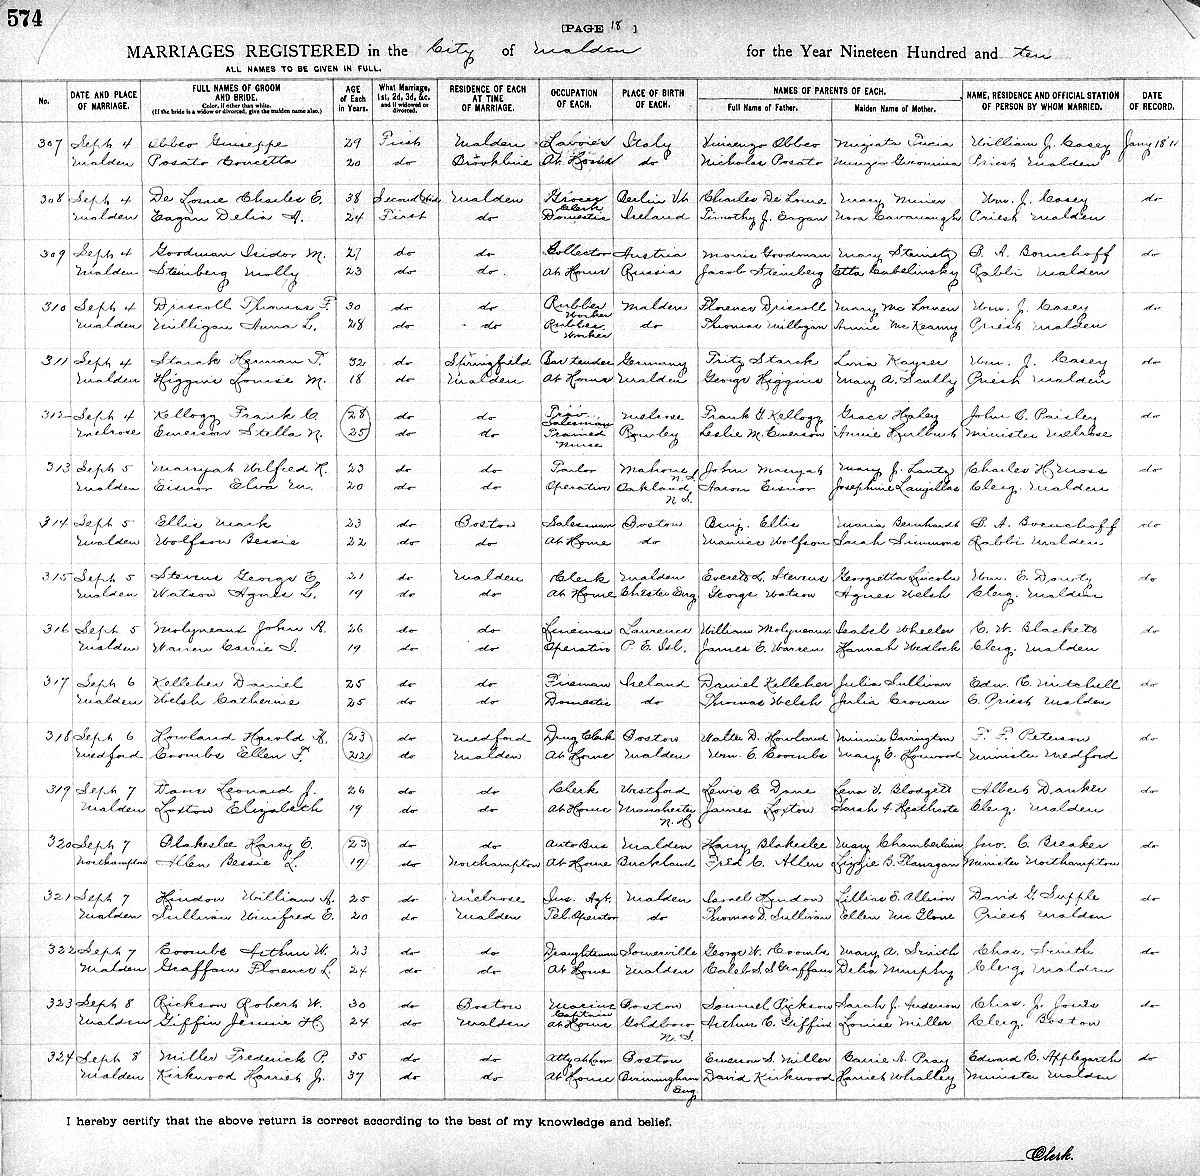 574
[PAGE 18 ]
MARRIAGES REGISTERED in the City of Malden for the Year Nineteen Hundred and ten
ALL NAMES TO BE GIVEN IN FULL.
No. DATE AND PLACE OF MARRIAGE. FULL NAMES OF GROOM AND BRIDE. Color, if other than white. (If the bride is a widow or divorced, give the maiden name also.) AGE of Each in Years. What Marriage, 1st, 2d, 3d, &c. and if widowed or divorced. RESIDENCE OF EACH AT TIME OF MARRIAGE. OCCUPATION OF EACH. PLACE OF BIRTH OF EACH. NAMES OF PARENTS OF EACH. Full Name of Father. Maiden Name of Mother. NAME, RESIDENCE AND OFFICIAL STATION OF PERSON BY WHOM MARRIED. DATE OF RECORD.
307 Sept 4 Abbeo Giuseppe 29 First Malden Laborer Italy Vincenzo Abbeo William J. Casey Jany 18 '11
Malden Posato Concetta 20 do Brookline At Home do Nicholas Posato Priest Malden
308 Sept 4 De Lorme Charles E. 38 Second Malden Grocery Clerk Berlin Vt Charles De Lorme Mary Wm. J. Casey do
Malden Eagan Delia A. 24 First do Domestic Ireland Timothy J. Eagan Nora Cavanaugh Priest Malden
309 Sept 4 Goodman Isidor M. 27 do do Collector Austria Morris Goodman Mary B. A. Boruchoff do
Malden Steinberg Molly 23 do do At Home Russia Jacob Steinberg Etta Rabbi Malden
310 Sept 4 Driscoll Thomas F. 30 do do Rubber Worker Malden Florence Driscoll Mary Wm. J. Casey do
Malden Milligan Anna L. 28 do do Rubber Worker do Thomas Milligan Annie Priest Malden
311 Sept 4 Starck Herman F. 32 do Springfield Bartender Germany Fritz Starck Kayser Wm. J. Casey do
Malden Higgins Louise M. 18 do Malden At Home Malden George Higgins Mary A. Scully Priest Malden
312 Sept 4 Kellogg Frank C. 28 do do Salesman Melrose Frank G. Kellogg Grace Haley John C. Paisley do
Melrose Emerson Stella N. 25 do do Trained Nurse Rowley Leslie M. Emerson Annie Hurlburt Minister Melrose
313 Sept 5 Marryat Wilfred R. 23 do do Mahone N.S. John Marryat Mary J. Lantz Charles H. Moss do
Malden Eisnor Elva M. 20 do do Operative Oakland N.S. Aaron Eisnor Josephine Langille Clerg. Malden
314 Sept 5 Ellis Mark 23 do Boston Salesman Boston Benj. Ellis Maria Bernhardt B. A. Boruchoff do
Malden Wolfson Bessie 22 do do At Home do Maurice Wolfson Sarah Simmons Rabbi Malden
315 Sept 5 Stevens George E. 21 do Malden Clerk Malden Everett L. Stevens Georgietta Lincoln Wm. E. Dowty do
Malden Watson Agnes L. 19 do do At Home Chester Eng George Watson Agnes Welsh Clerg. Malden
316 Sept 5 Molyneaux John A. 26 do do Lineman Lawrence William Molyneaux Isabel Wheeler C. W. Blackett do
Malden Warren Carrie I. 19 do do Operative P. E. Isl. James E. Warren Hannah Wedlock Clerg. Malden
317 Sept 6 Kelleher Daniel 25 do do Fireman Ireland Daniel Kelleher Julia Sullivan Edw. C. Mitchell do
Malden Welsh Catherine 25 do do Domestic do Thomas Welsh Julia Cronan C. Priest Malden
318 Sept 6 Howland Harold A. 23 do Medford Drug Clerk Boston Walter D. Howland Minnie Barrington F. F. Peterson do
Medford Coombs Ellen F. 22 do Malden At Home Malden Wm. E. Coombs Mary E. Horwood Minister Medford
319 Sept 7 Dane Leonard J. 26 do do Clerk Westford Lewis C. Dane Lena V. Blodgett Albert Danker do
Malden Loxton Elizabeth 19 do do At Home Manchester N.H James Loxton Sarah A Heathcote Clerg. Malden
320 Sept 7 Blakeslee Harry E. 23 do do Auto Bus Malden Harry Blakeslee Mary Chamberlain Jno. C. Breaker do
Northampton Allen Bessie L. 19 do Northampton At Home Buckland Fred C. Allen Lizzie B. Flanagan Minister Northampton
321 Sept 7 Hindon William A. 25 do Melrose Ins. Agt. Malden Israel Hindon Lillian E. Allison David G. Supple do
Malden Sullivan Winifred E. 20 do Malden Tel Operator do Thomas D. Sullivan Ellen McGlone Priest Malden
322 Sept 7 Coombs Arthur W. 23 do do Draughtsman Somerville George W. Coombs Mary A. Smith Chas. Smith do
Malden Graffam Florence L. 24 do do At Home Malden Caleb S. Graffam Delia Murphy Clerg. Malden
323 Sept 8 Rickson Robert W. 30 do Boston Marine Captain Boston Samuel Rickson Sarah J. Anderson Chas. J. Jones do
Malden Giffin Jennie H. 24 do Malden At Home Goldboro N.S. Arthur C. Giffin Louise Miller Clerg. Boston
324 Sept 8 Miller Frederick P. 35 do do Atty at Law Boston Emerson S. Miller Carrie A. Pray Edward C. Applegarth do
Malden Kirkwood Harriet J. 37 do do At Home Birmingham Eng. David Kirkwood Harriet Whalley Minister Malden
I hereby certify that the above return is correct according to the best of my knowledge and belief.
Clerk.